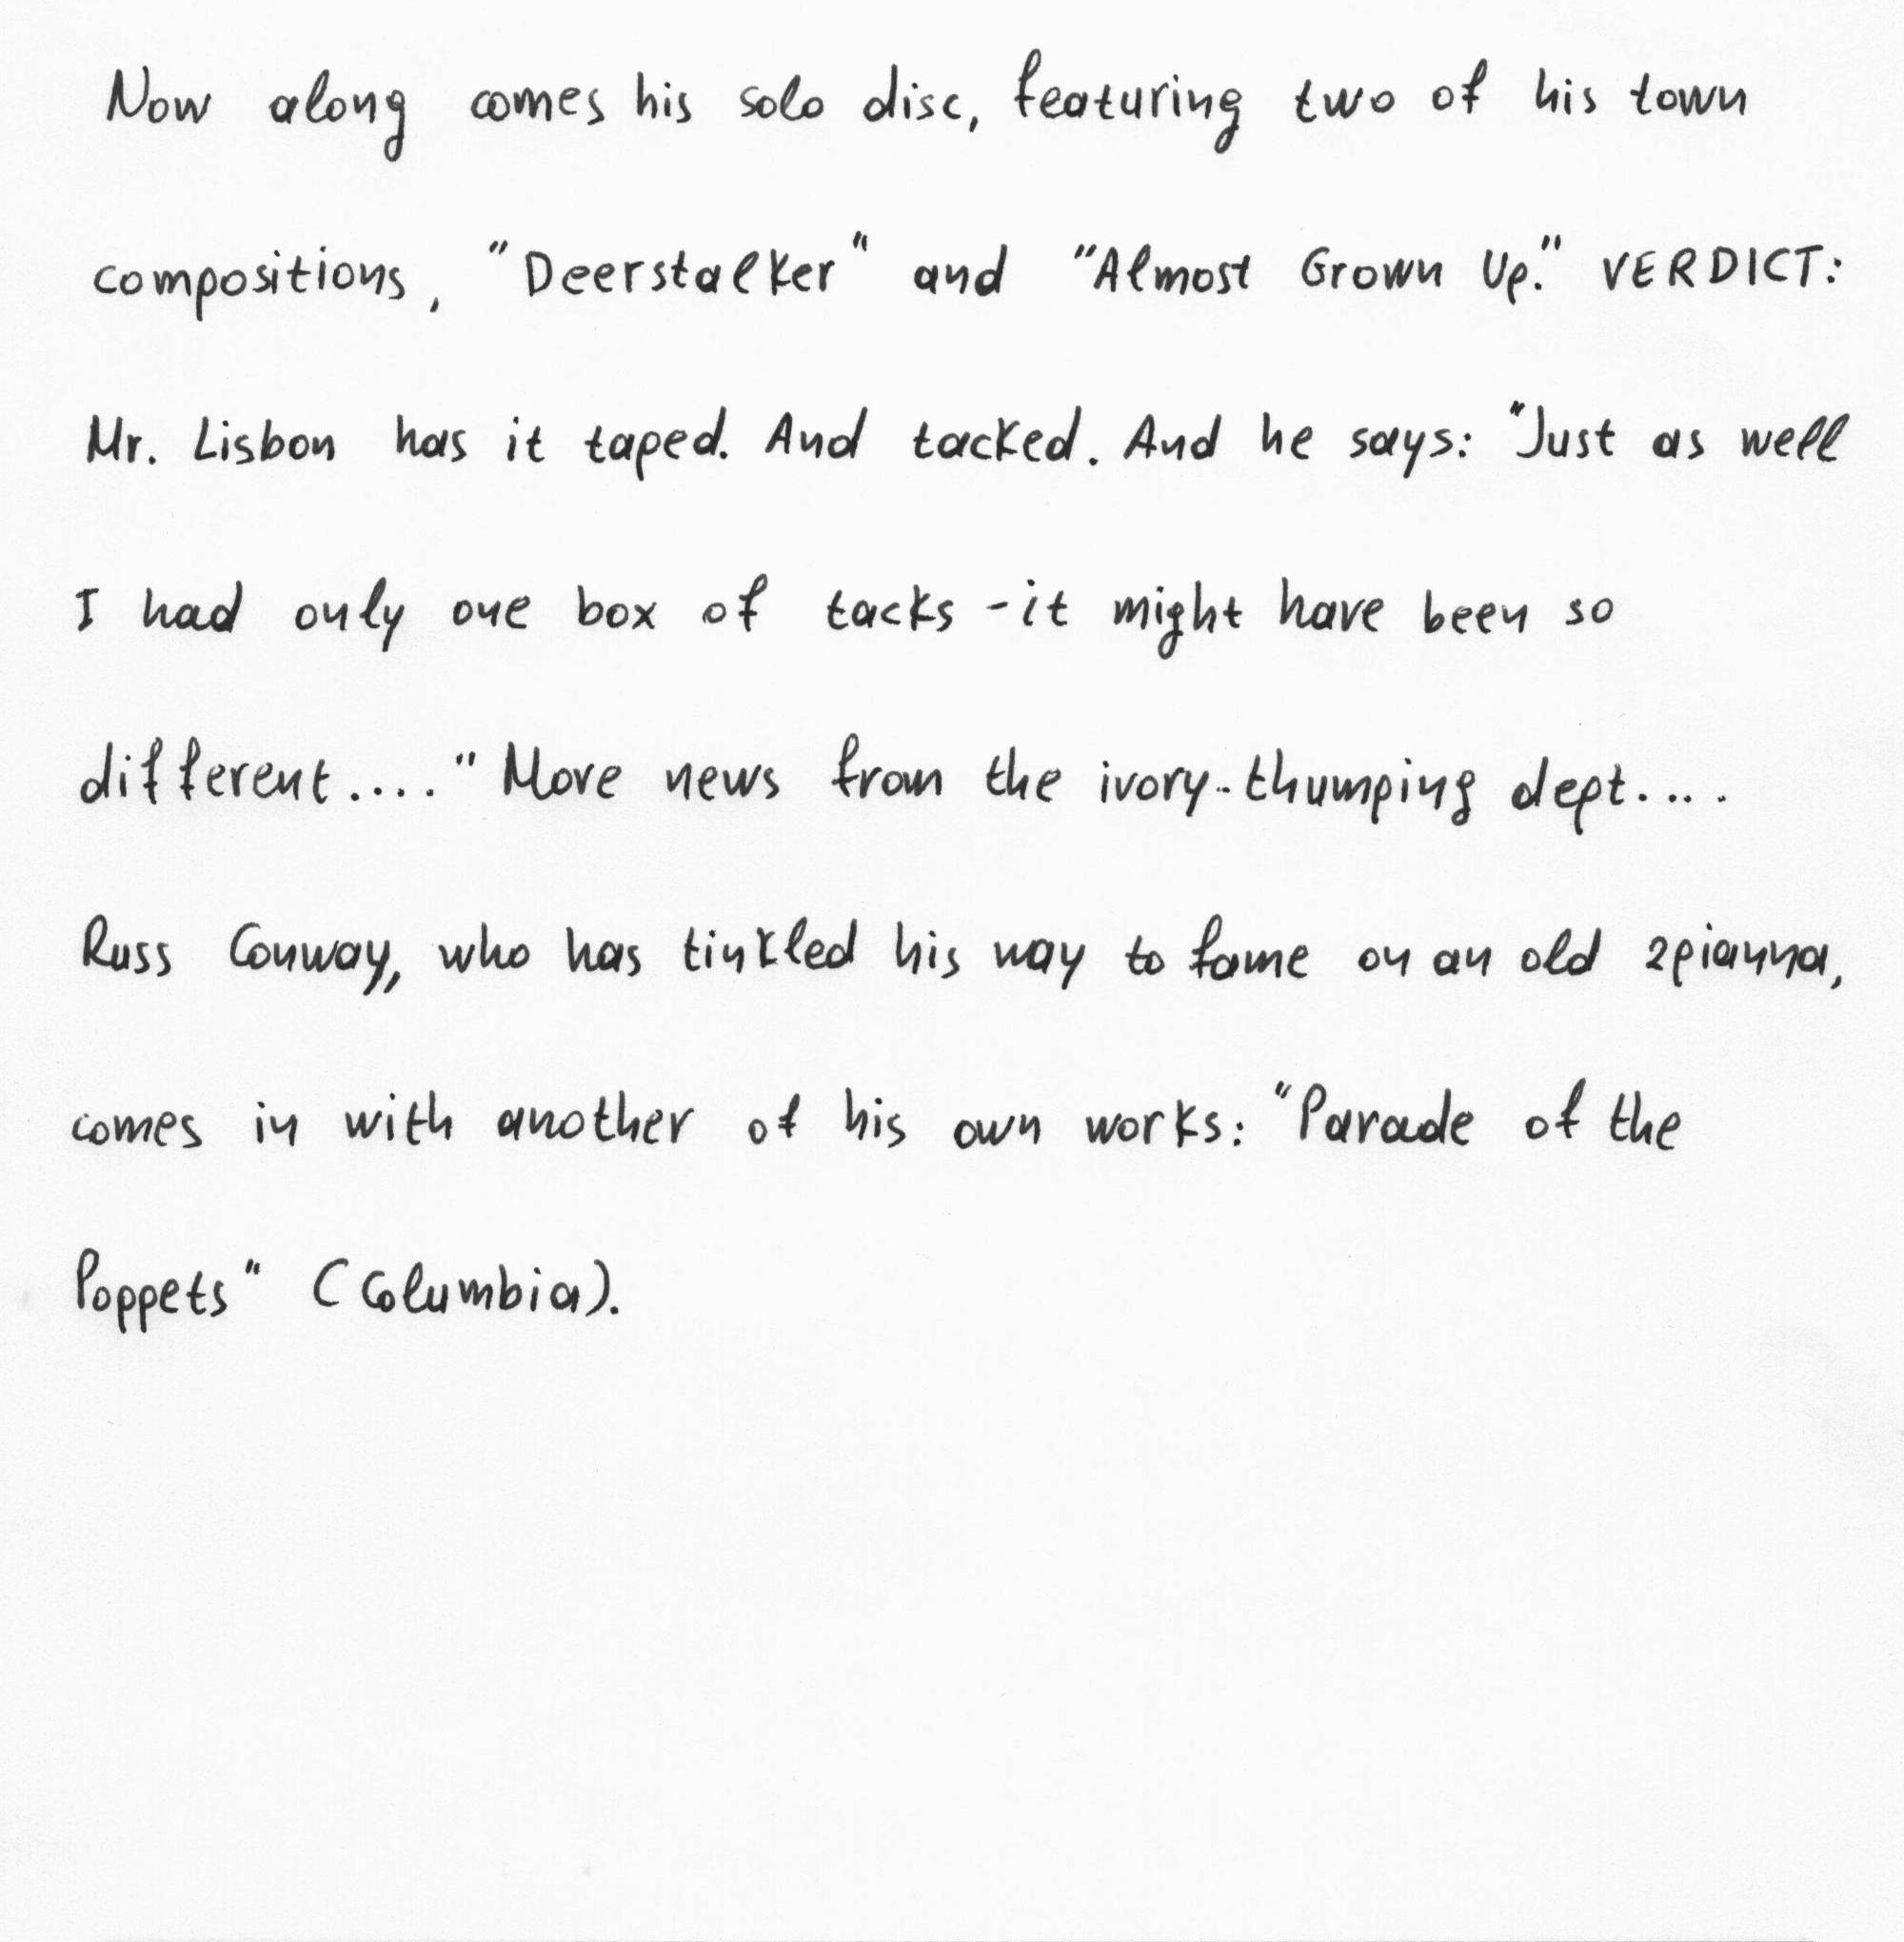 Now along comes his solo disc, featuring two of his town
compositions, "Deerstalker" and "Almost Grown Up." VERDICT:
Mr. Lisbon has it taped. And tacked. And he says: "Just as well
I had only one box of tacks - it might have been so
different...." More news from the ivory-thumping dept....
Russ Conway, who has tinkled his way to fame on an old 2pianna,
comes in with another of his own works: "Parade of the
Poppets" (Columbia).